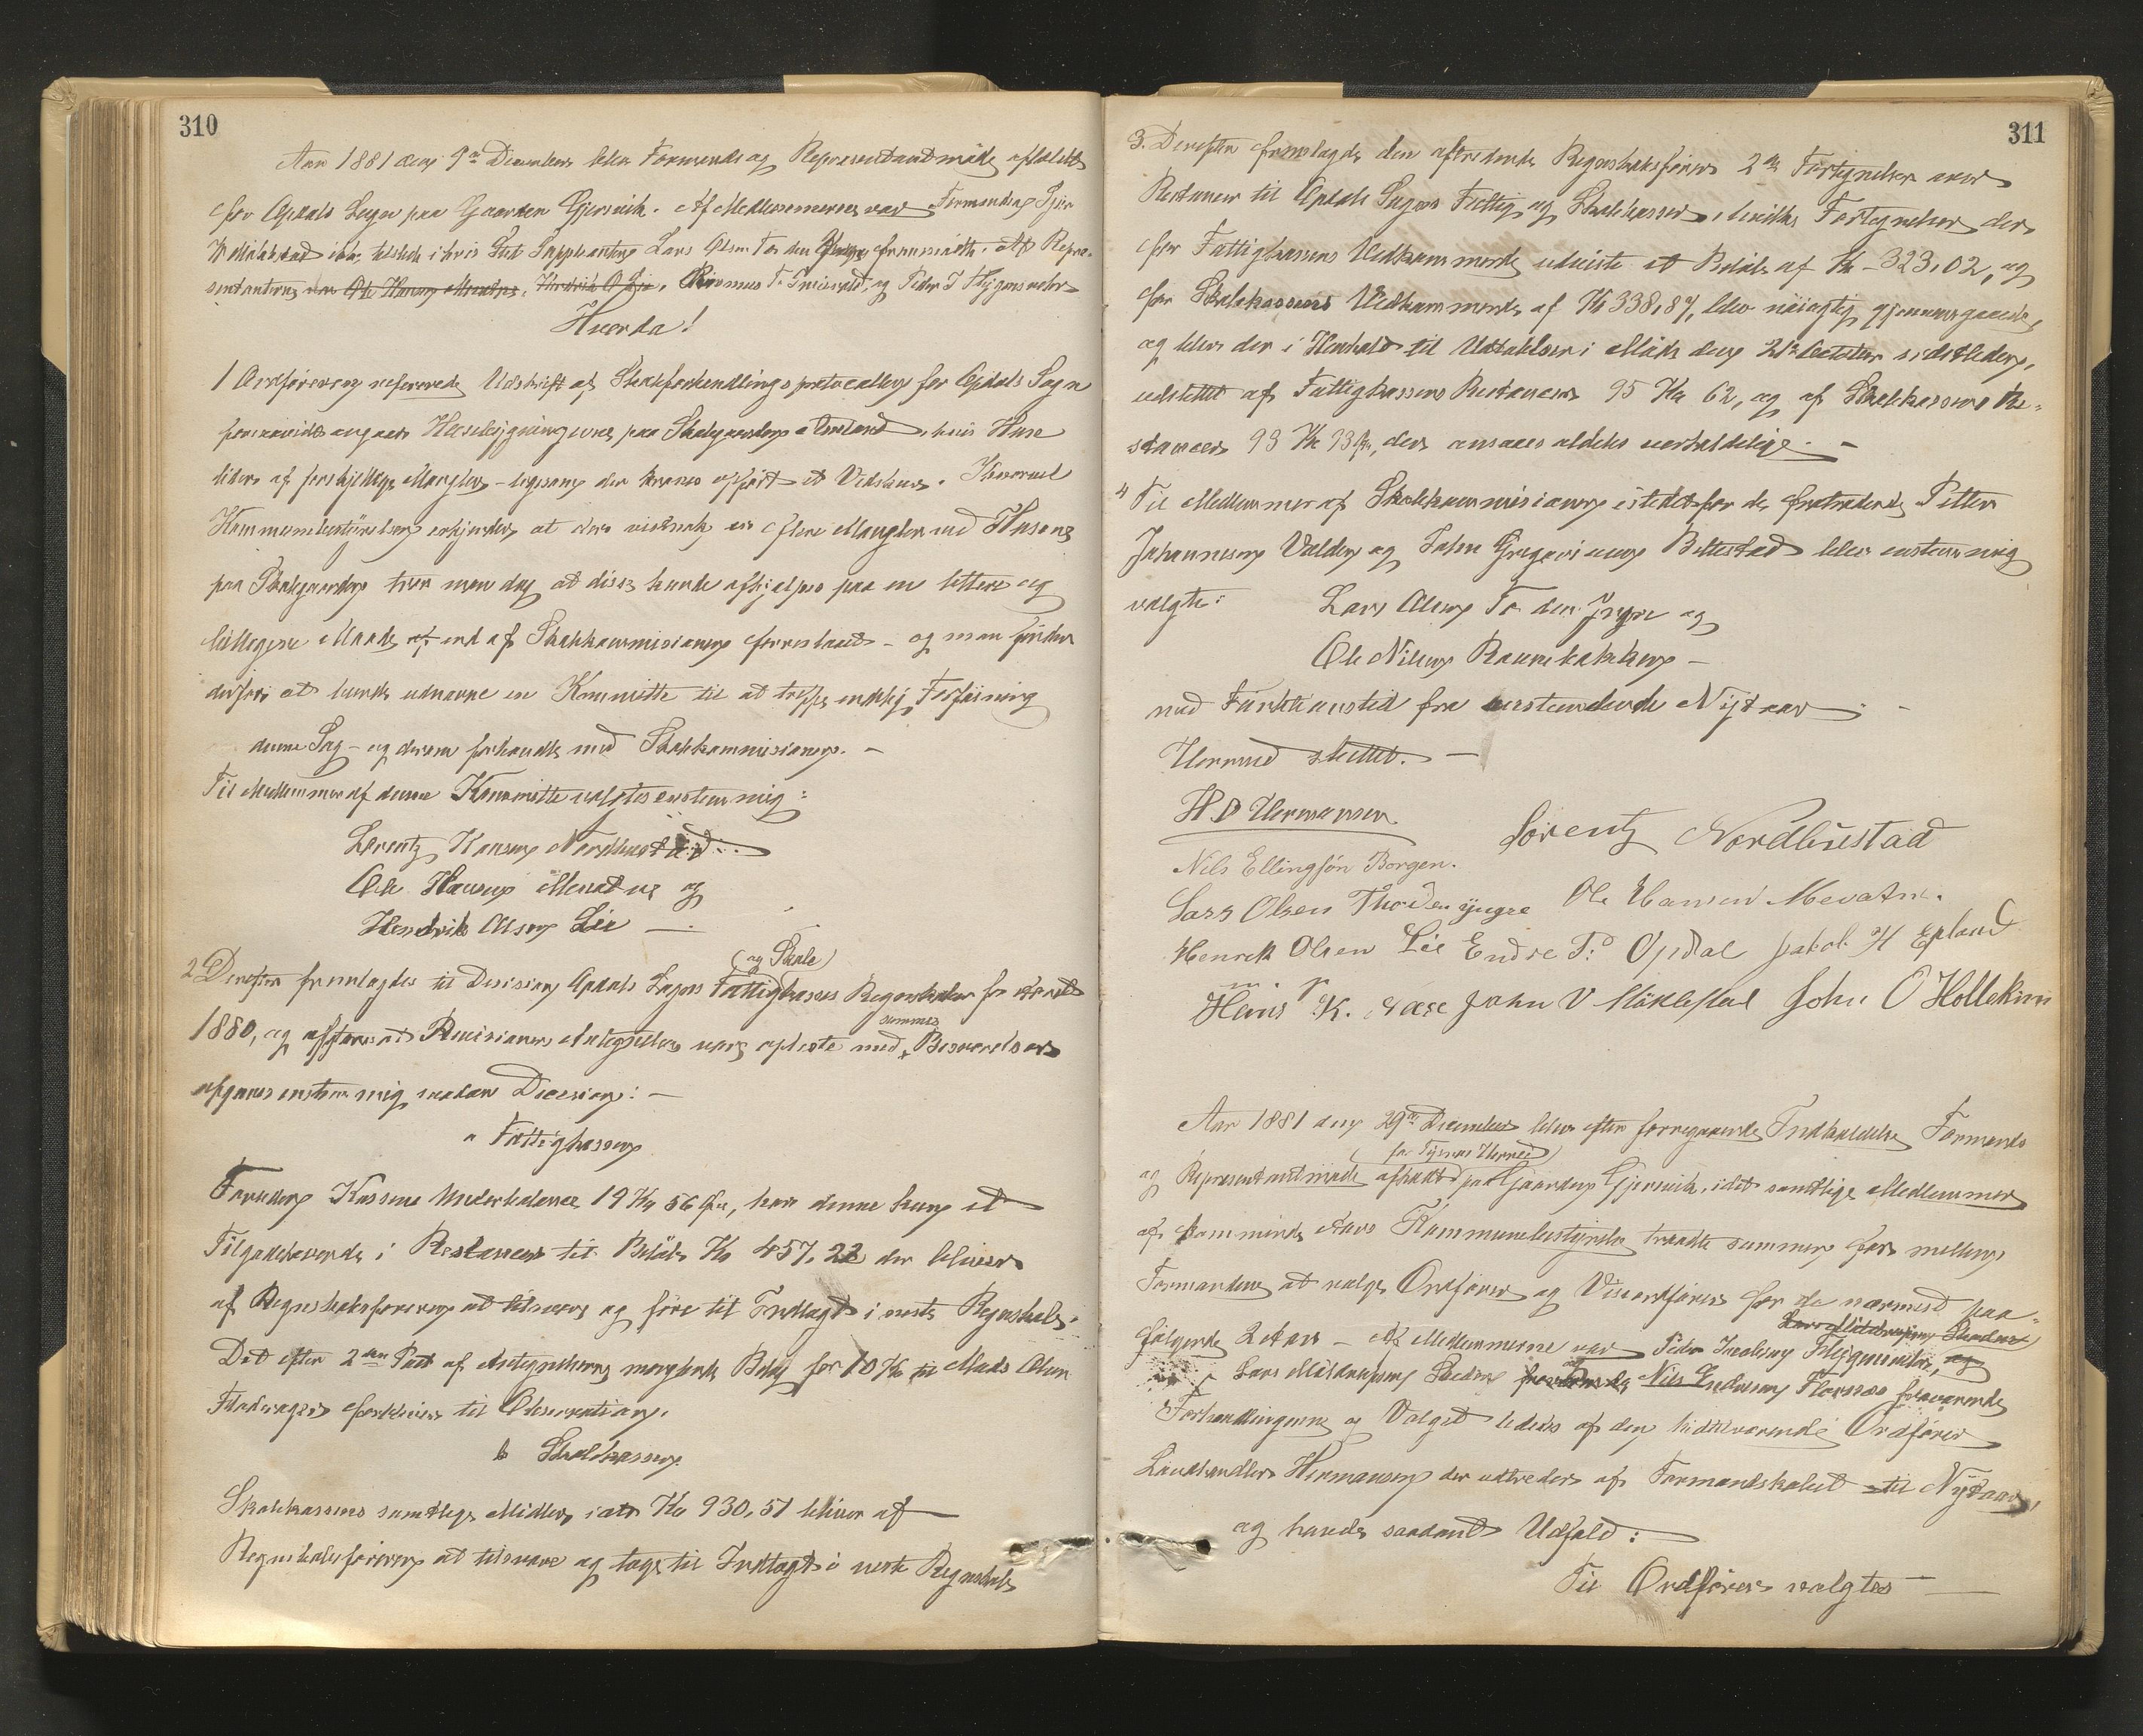 310
Aar 1881 den 9de December blev Formands og Representantmöde afholdt
for Opdals Sogn paa Gaarden Gjersvik. Af Medlemmerne var Formand
ikke tilstede i hvis Sted Suppleanten Lars Olsen Tø den Yngre fremmödte. Af Repræ-
sentanterne var Ole Hansen Mevatne, Hendrik O Lie, Rasmus T. og Peder J Flygansvær
Hvorda!
1 Ordföreren refererede Udskrift af Skoleforhandlingsprotocollen for Opdals Sogn
forsaavidt angaar Husebygningerne paa Skolegaarden hvis Huse
lider af forskjellige Mangler – ligesom der kræves opfört et Vedskuur. Hvorvel
Kommunebestÿrelsen erkjender, at der vistnok er flere Mangler ved Husene
paa Skolegaarden tror man dog at disse kunde afhjælpes paa en lettere og
billigere Maade end af Skolekommisionen foreslaaet – og man finder
derfor at burde udnævne en Kommitte til at treffe endelig Forföining
denne Sag – og derom forhandle med Skolekommisionen. –
Til Medlemmer af denne Kommitte valgtes enstemmig:
Lorentz Hansen Nordhustad
Ole Hansen Mevatne og
Hendrik Olsen Lie —.
(og Skole)
2 Derefter fremlagdes til Decision Opdals Sogns Fattigkasses Regnskaber for Aaret
1880, og efterat Revisionens Antegnelser var oplæste med sammes Besvarelser
afgaves enstemmig saadan Decision: –
a Fattigkassen
Foruden Kassens Underbalance 19 Kr 56 Öre, har denne kun et
Tilgodehavende i Restancer til Belöb Kr 457.22 der bliver
af Regnskabsföreren at tilsvare og före til Indtægt i neste Regnskab.
Det efter 2den Post af Antegnelserne manglende Bilag for 10 Kr til Mads Olsen
forbliver til Observation.
b Skolekassen
Skolekassens samtlige Midler, ialt Kr 930,51 bliver af
Regnskabsföreren at tilsvare og tage til Indtægt i neste Regnskab
311
3. Derefter fremlagde den aftrædende Regnskabsförer 2de Fortegnelser over
Restancer til Opdals Sogns Fattig og Skolekasser, hvilke Fortegnelser der
for Fattigkassens Vedkommende udviste et Belöb af Kr – 323,02, og
for Skolekassens Vedkommende af Kr 338,87, blev nöiagtig gjennemgaaede,
og blev der i Henhold til Udtalelser i Möde den October sidstleden,
udslettet af Fattigkassens Restancer 95 Kr 62, og af Skolekassens Re-
stancer 93 Kr 93 Öre, der ansaaes aldeles uerholdelige. –
4 Til Medlemmer af Skolekommisionen istedetfor de fratrædende Petter
Johannesen Valden og John Gregoriusen Bettestad blev enstemmig
valgte:
Lars Olsen Tø den Yngre og
Ole Nilsen Raunekakken –
med Funktionstid fra anstundende Nÿtaar –
Hermed sluttet. –
H D Hermansen.
Lorentz Nordhustad
Nils Ellingsön Borgen.
Lars Olsen Thø den yngre Ole Hansen Mevatne.
Henrik Olsen Lie Endre T. Opdal Jakob H Epland
Hans K. Naxe John V Möklestad John O Hollekim
Aar 1881 den 29de December blev efter forregaaende Indkaldelse Formands
(for Tysnes Herred)
og Representantmöde afholdt paa Gaarden Gjersvik, idet samtlige Medlemmer
af kommende Aars Kommunebestÿrelse traadte sammen for mellem
Formændene at valge Ordförer og Viceordförer for de nærmest paa-
fölgende 2 Aar – Af Medlemmerne var Peder Jacobsen Flygansvær, og
Lars Möldrupsen og Nils Endresen Flornæs fraværende
Forhandlingerne og Valget lededes af den hidtilværende Ordförer
Landhandler Hermansen der udtreder af Formandskabet til Nÿtaar,
og havde saadant Udfald:
Til Ordförer valgtes —